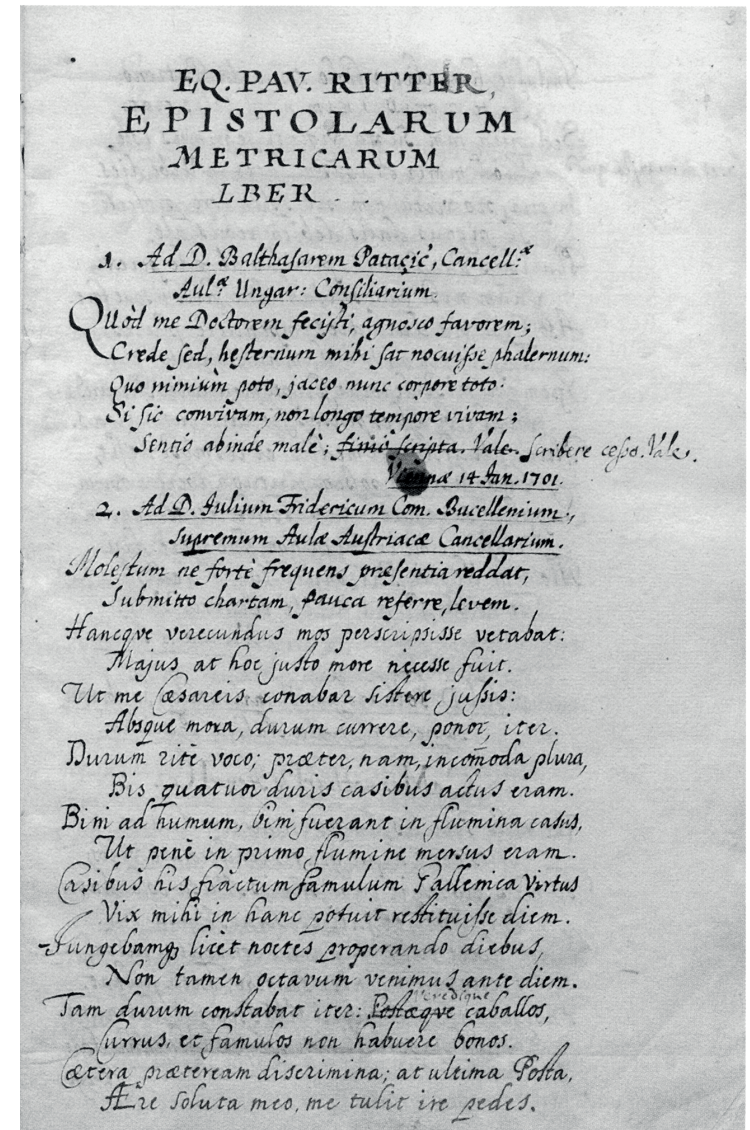 EQ. PAV. RITTER,
EPISTOLARUM
METRICARUM
LBER
1. Ad D. Balthasarem Patačič, Cancell.æ
Aul.æ Ungar: Consiliarium.
Quòd me Doctorem fecisti, agnosco favorem;
Crede sed, hesternum mihi sat nocuisse phalernum:
Quo nimiùm poto, jaceo nunc corpore toto:
Si sic convivam, non longo tempore vivam;
Sentio abinde malè; finio scripta. Vale. scribere cesso. Vale.
Viennæ 14 Jan. 1701.
2. Ad D. Julium Fridericum Com. Bucellenium,
supremum Aulæ Austriacæ Cancellarium.
Molestum ne fortè frequens præsentia reddat,
Submitto chartam, pauca referre, levem.
Hancqve verecundus mos perscripsisse vetabat:
Majus at hoc justo more necesse fuit.
Ut me Cæsareis, conabar sistere jussis:
Absque mora, durum currere, ponor, iter.
Durum ritè voco; præter, nam, incom̄oda plura,
Bis quatuor duris casibus actus eram.
Bini ad humum, bini fuerant in flumina casus,
Ut penè in primo flumine mersus eram.
Casibus his fractum famulum Pallenica virtus
Vix mihi in hanc potuit restituisse diem.
Jungebamq; licet noctes properando diebus,
Non tamen octavum venimus ante diem.
Tam durum constabat iter: Postæqve caballos,
Currus, et famulos non habuere bonos.
Cætera præteream discrimina; at ultima Posta,
Ære soluta meo, me tulit ire pedes.